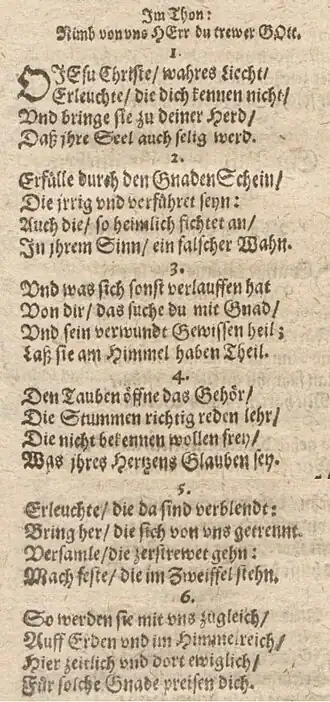 Im Thon:
Nimb von vns HErr du trewer GOtt.
1.
O JEsu Christe/ wahres Liecht/
Erleuchte/ die dich kennen nicht/
Vnd bringe sie zu deiner Herd/
Daß jhre Seel auch selig werd.
2.
Erfülle durch den GnadenSchein/
Die jrrig vnd verführet seyn:
Auch die/ so heimlich fichtet an/
In jhrem Sinn/ ein falscher Wahn.
3.
Vnd was sich sonst verlauffen hat
Von dir/ das suche du mit Gnad/
Vnd sein verwundt Gewissen heil;
Laß sie am Himmel haben Theil.
4.
Den Tauben öffne das Gehör/
Die Stummen richtig reden lehr/
Die nicht bekennen wollen frey/
Was jhres Hertzens Glauben sey.
5.
Erleuchte/ die da sind verblendt:
Bring her/ die sich von vns getrennt.
Versamle/ die zerstrewet gehn:
Mach feste/ die im Zweiffel stehn.
6.
So werden sie mit vns zugleich/
Auff Erden vnd im Himmelreich/
Hier zeitlich vnd dort ewiglich/
Für solche Gnade preisen dich.